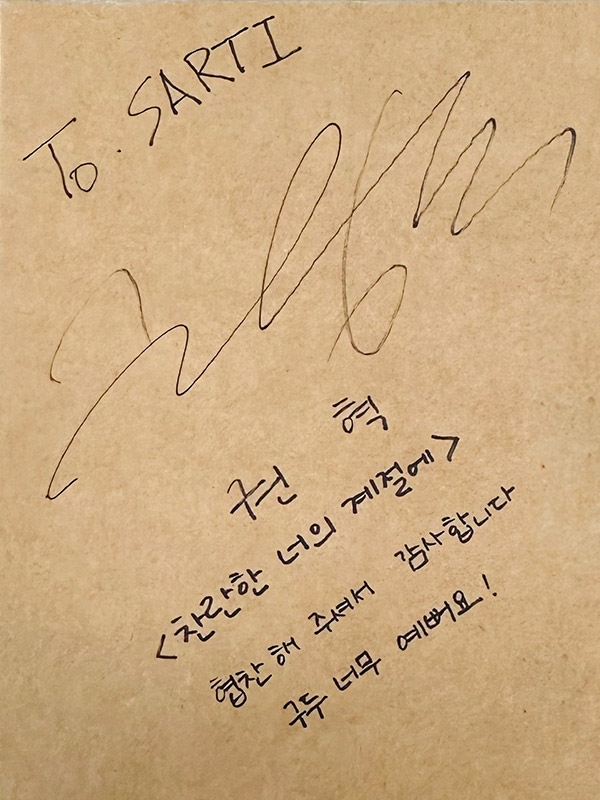 To. SARTI
권 혁
<찬란한 너의 계절에>
협찬해 주셔서 감사합니다
구두 너무 예뻐요!